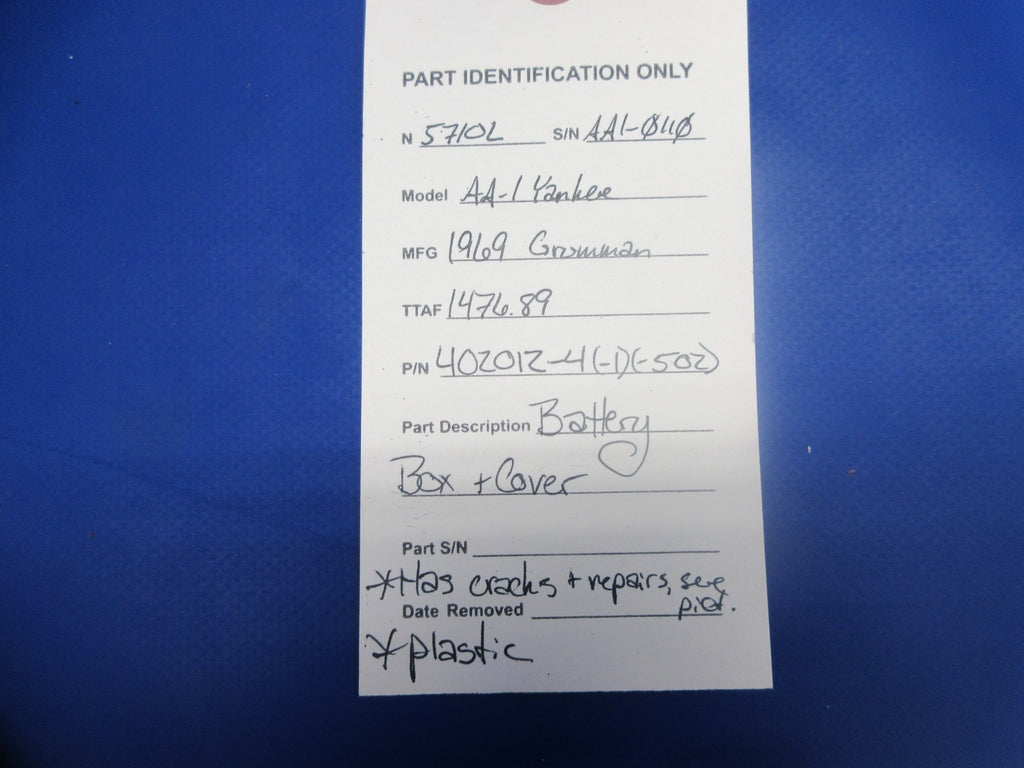 PART IDENTIFICATION ONLY
N 5710L S/N AA1-0110
Model AA-1 Yankee
MFG 1969 Grumman
TTAF 1476.89
P/N 402012-4(-1)(-502)
Part Description Battery
Box + Cover
Part S/N
*Has cracks + repairs, see
pict.
Date Removed
*plastic